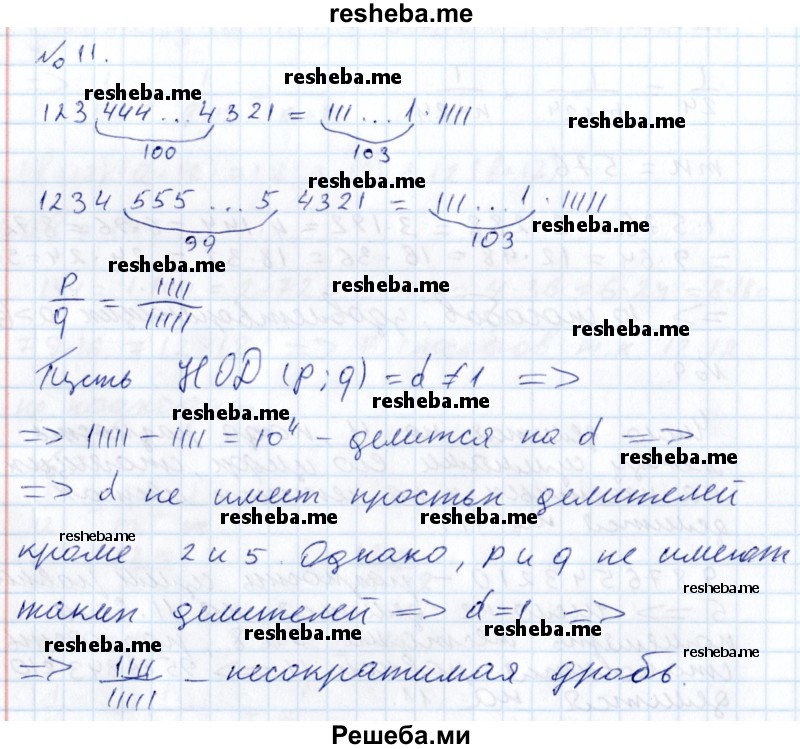 resheba.me
№ 11.
resheba.me
resheba.me
123 444...4 321 = 111...1 · 1111
resheba.me
100 103
resheba.me
1234 555 ... 5 4321 = 111...1 · 11111
99 103
resheba.me
resheba.me
p/q = 1111/11111
resheba.me
resheba.me
Пусть НОД (p; q) = d ≠ 1 =>
resheba.me
resheba.me
=> 11111 - 1111 = 10⁴ - делится на d =>
resheba.me
=> d не имеет простых делителей
resheba.me resheba.me
кроме 2 и 5. Однако, p и q не имеют
resheba.me
resheba.me
таких делителей => d=1 =>
resheba.me
resheba.me
=> 1111/11111 - несократимая дробь.
resheba.me
resheba.me
Решеба.ми